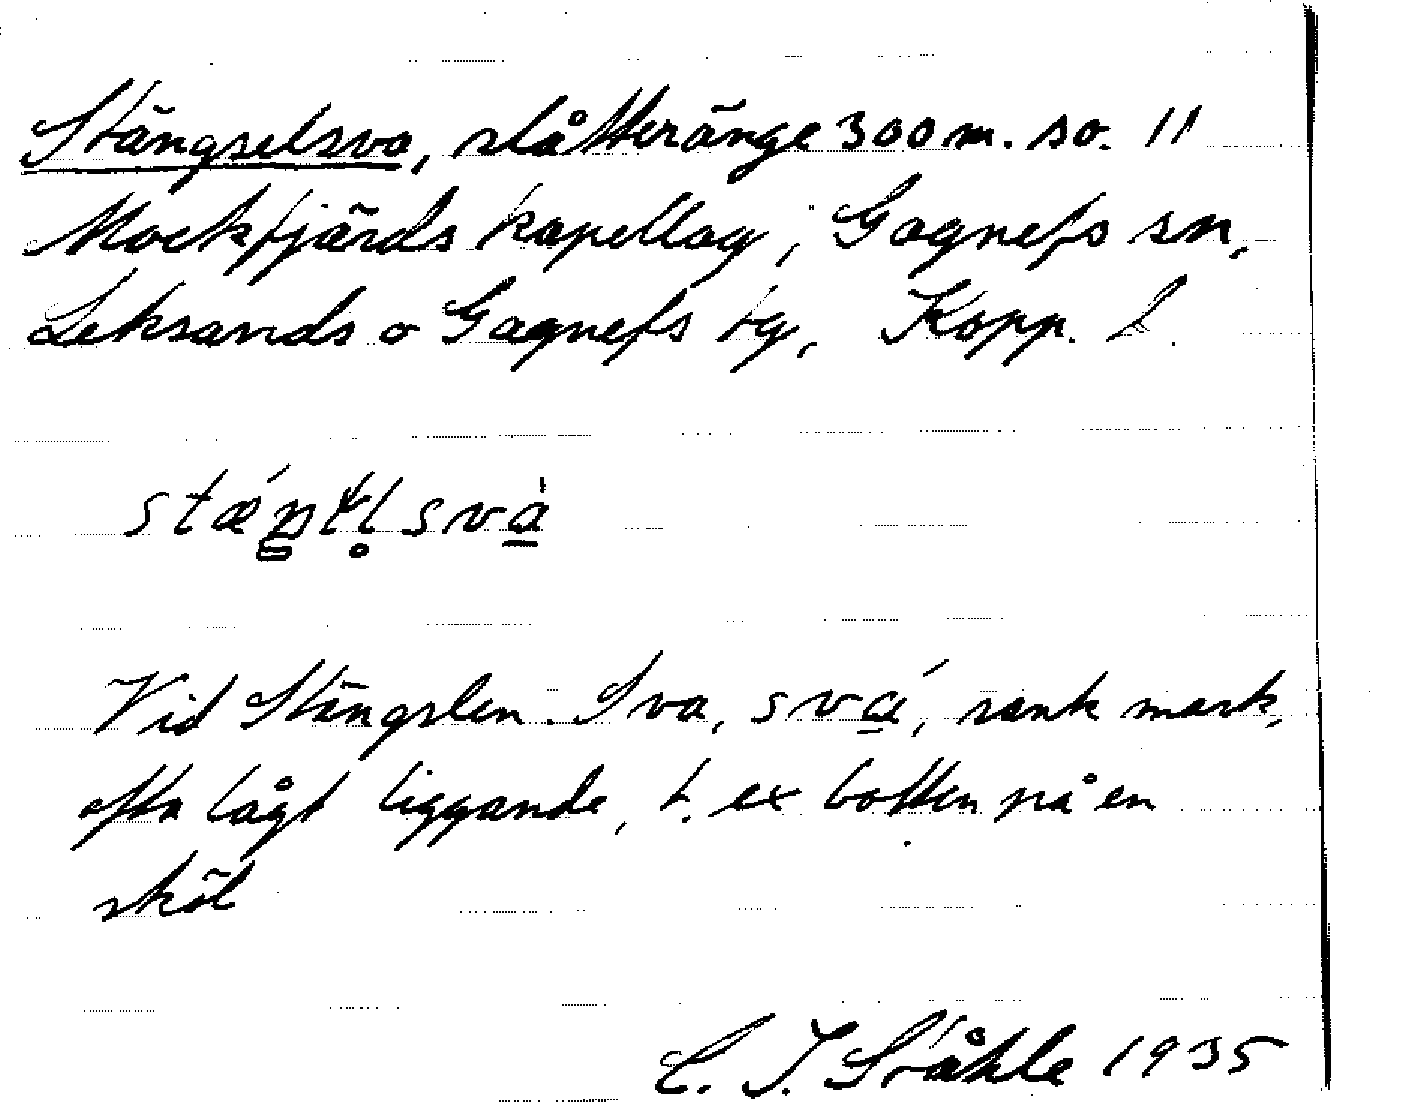 Stängselsva, slåtteränge 300 m. so. 11
Mockfjärds kapellag, Gagnefs sn,
Leksands o Gagnefs tg, Kopp. l.
Vid Stängslen. Sva, svá, sank mark,
ofta lågt liggande, t. ex botten på en
skål
C. I. Ståhle 1935